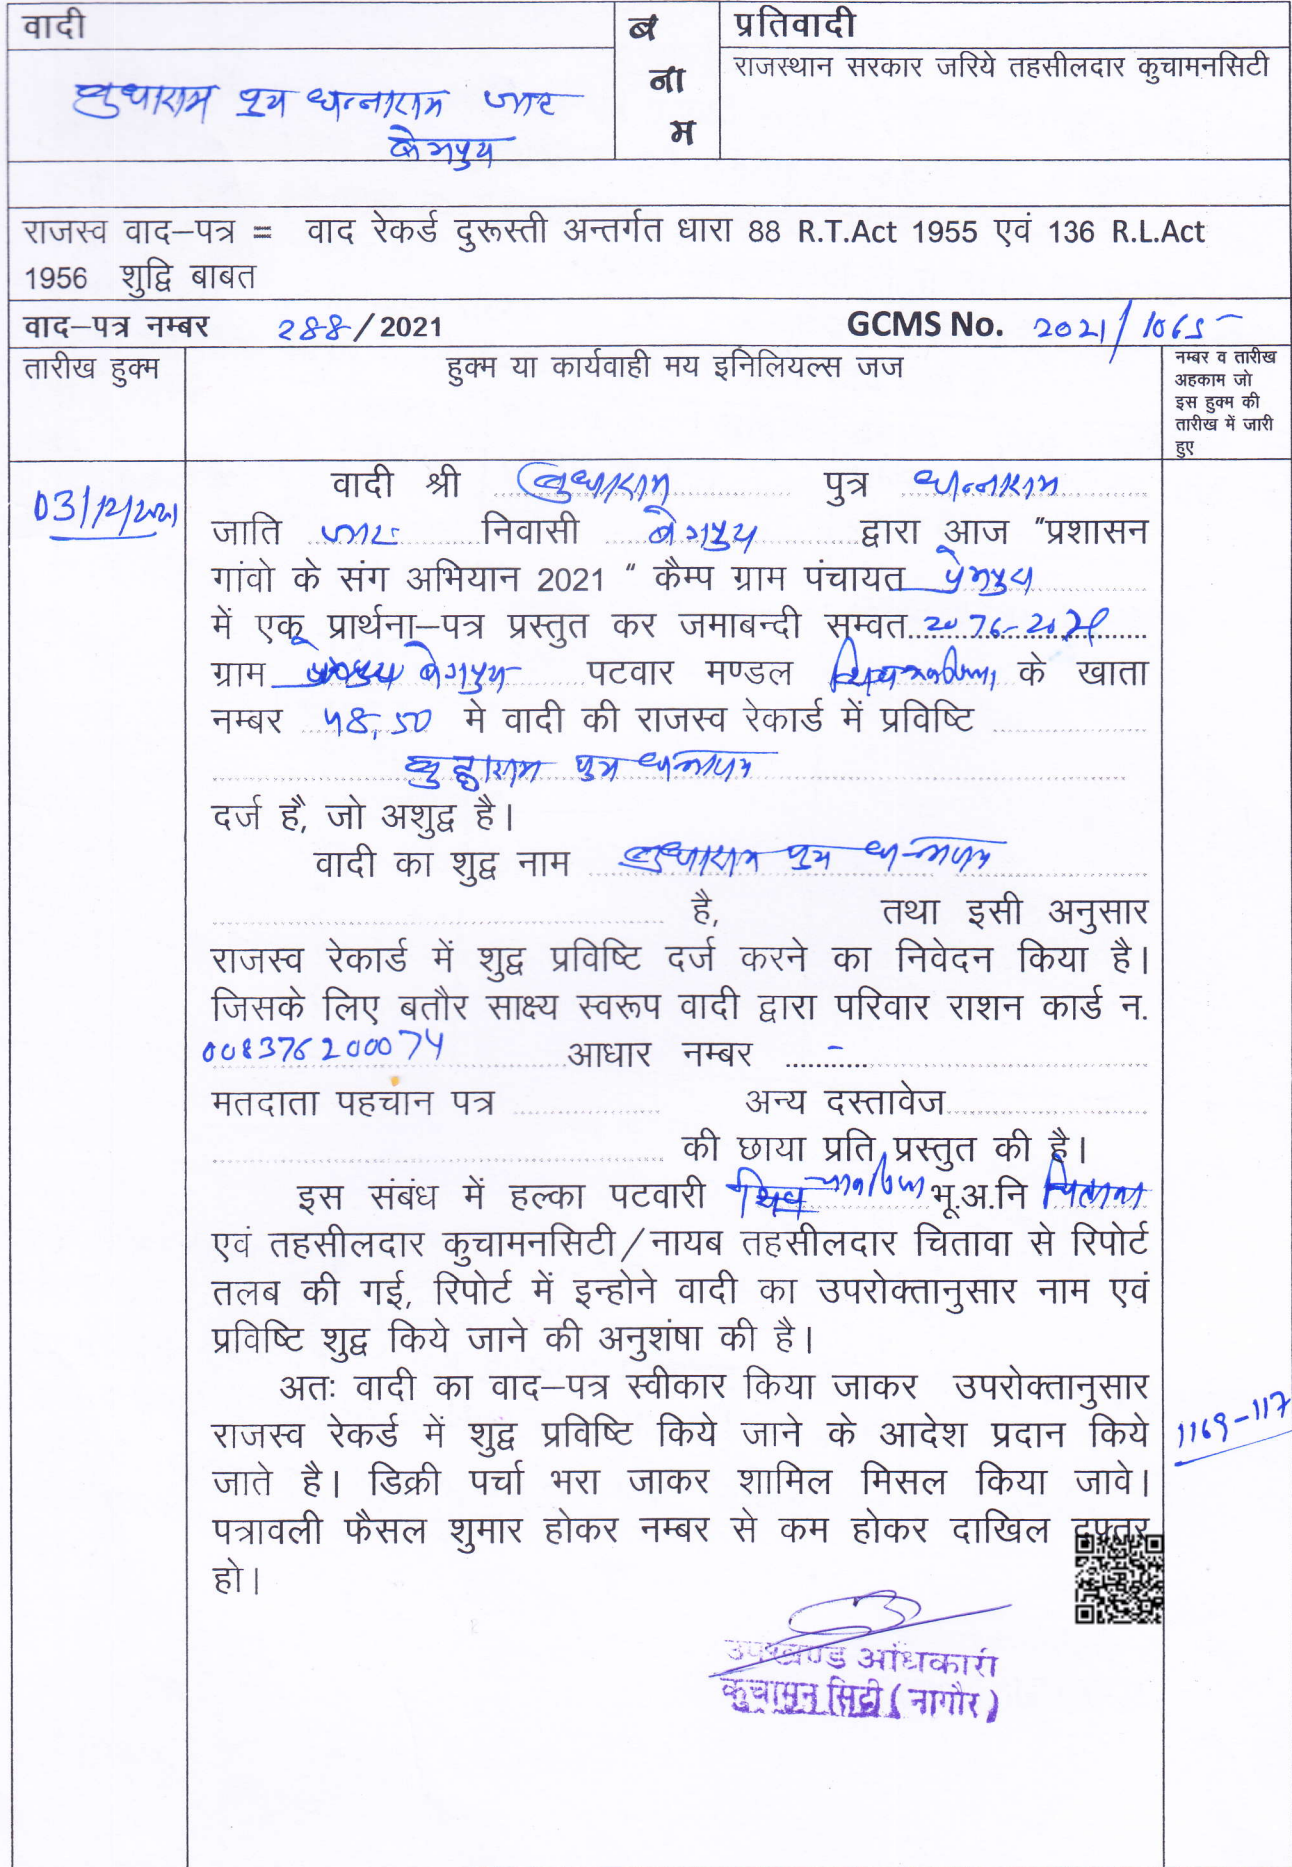 वादी
ब
ना
म
प्रतिवादी
राजस्थान सरकार जरिये तहसीलदार कुचामनसिटी
बुधाराम पुत्र धन्नाराम जाट
बेगपुरा
राजस्व वाद–पत्र = वाद रेकर्ड दुरूस्ती अन्तर्गत धारा 88 R.T.Act 1955 एवं 136 R.L.Act
1956 शुद्वि बाबत
वाद–पत्र नम्बर 288/2021 GCMS No. 2021/1065
तारीख हुक्म
हुक्म या कार्यवाही मय इनिलियल्स जज
नम्बर व तारीख
अहकाम जो
इस हुक्म की
तारीख में जारी
हुए
03/12/2021
वादी श्री बुधाराम पुत्र धन्नाराम
जाति जाट निवासी बेगपुरा द्वारा आज "प्रशासन
गांवो के संग अभियान 2021 " कैम्प ग्राम पंचायत प्रेमपुरा
में एक प्रार्थना–पत्र प्रस्तुत कर जमाबन्दी सम्वत 2076-2079
ग्राम बेगपुरा पटवार मण्डल के खाता
नम्बर 48, 50 मे वादी की राजस्व रेकार्ड में प्रविष्टि
बुद्धाराम पुत्र धन्नाराम
दर्ज है, जो अशुद्व है।
वादी का शुद्व नाम बुधाराम पुत्र धन्नाराम
है, तथा इसी अनुसार
राजस्व रेकार्ड में शुद्व प्रविष्टि दर्ज करने का निवेदन किया है।
जिसके लिए बतौर साक्ष्य स्वरूप वादी द्वारा परिवार राशन कार्ड न.
008376200074 आधार नम्बर -
मतदाता पहचान पत्र अन्य दस्तावेज
की छाया प्रति प्रस्तुत की है।
इस संबंध में हल्का पटवारी भू.अ.नि चितावा
एवं तहसीलदार कुचामनसिटी/नायब तहसीलदार चितावा से रिपोर्ट
तलब की गई, रिपोर्ट में इन्होने वादी का उपरोक्तानुसार नाम एवं
प्रविष्टि शुद्व किये जाने की अनुशंषा की है।
अतः वादी का वाद–पत्र स्वीकार किया जाकर उपरोक्तानुसार
राजस्व रेकर्ड में शुद्व प्रविष्टि किये जाने के आदेश प्रदान किये
जाते है। डिक्री पर्चा भरा जाकर शामिल मिसल किया जावे।
पत्रावली फैसल शुमार होकर नम्बर से कम होकर दाखिल दफ्तर
हो।
1169-117
उपखण्ड अधिकारी
कुचामन सिटी (नागौर)